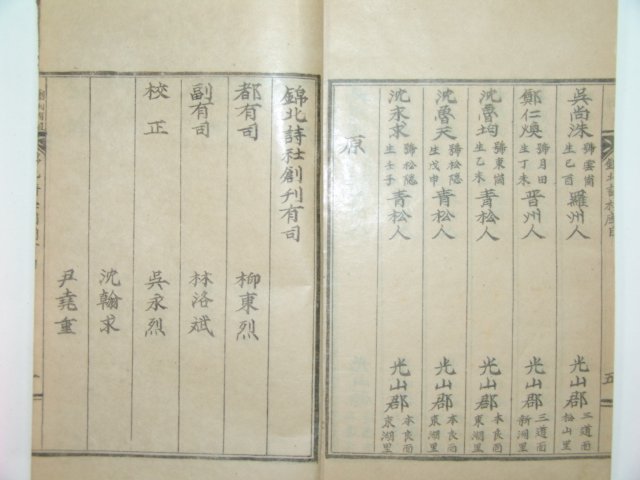 吳尚洙 號雲崗 生乙酉 羅州人 光山郡 三道面 松山里
鄭仁煥 號月田 生丁未 晋州人 光山郡 三道面 新洞里
沈魯均 號東崗 生乙未 青松人 光山郡 本良面 東湖里
沈魯天 號松隱 生戊申 青松人 光山郡 本良面 東湖里
沈求求 號松隱 生壬子 青松人 光山郡 本良面 東湖里
原
五
錦北詩社創刊有司
都有司 柳東烈
副有司 林洛斌
校正 吳永烈
沈翰求
尹堯重